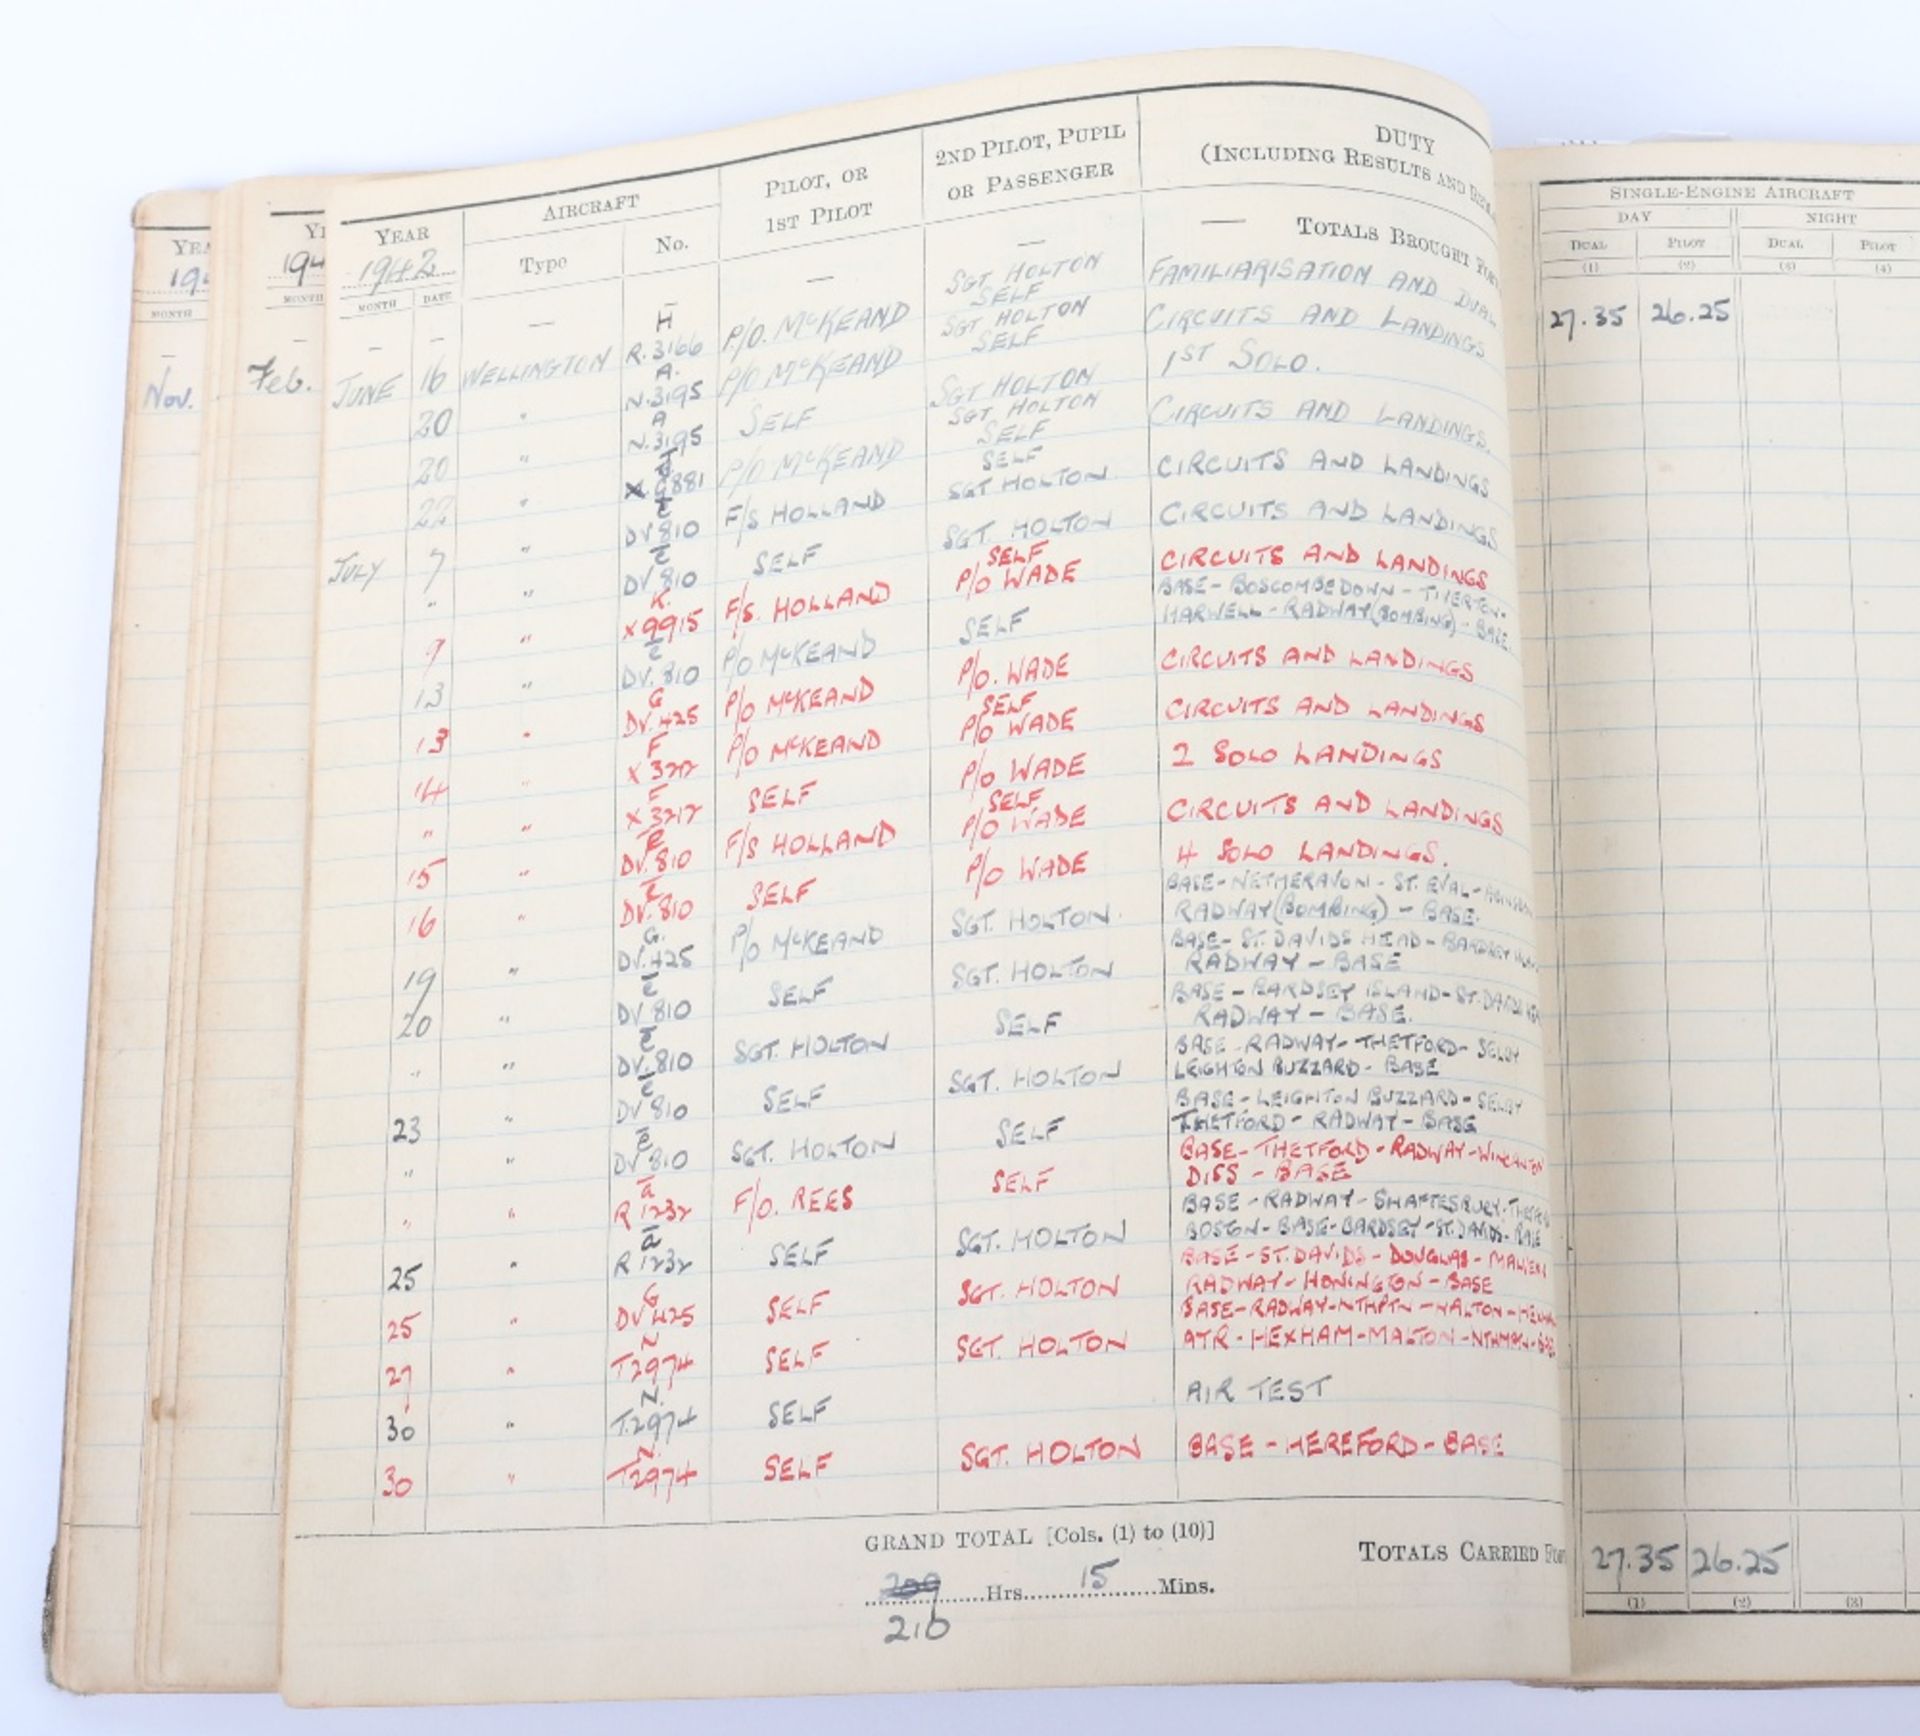 YEAR AIRCRAFT PILOT, OR 1ST PILOT 2ND PILOT, PUPIL OR PASSENGER DUTY (INCLUDING RESULTS AND
1942 Type No.
MONTH DATE
— — — — — — — TOTALS BROUGHT
JUNE 16 WELLINGTON H R.3166 P/O. McKEAND SGT HOLTON SELF FAMILIARISATION AND DUAL
20 " A. N.3195 P/O McKEAND SGT HOLTON SELF CIRCUITS AND LANDINGS
20 " A N.3195 SELF SGT HOLTON 1ST SOLO.
22 " X 9881 P/O McKEAND SGT HOLTON SELF CIRCUITS AND LANDINGS.
JULY 7 " E DV 810 F/S HOLLAND SELF SGT HOLTON. CIRCUITS AND LANDINGS
" " E DV.810 SELF SGT. HOLTON CIRCUITS AND LANDINGS
9 " K. X9915 F/S. HOLLAND SELF P/O WADE CIRCUITS AND LANDINGS
13 " E DV.810 P/O McKEAND SELF BASE - BOSCOMBE DOWN - TIVERTON -
HARWELL - RADWAY (BOMBING) - BASE.
13 " G DV.425 P/O McKEAND P/O. WADE CIRCUITS AND LANDINGS
14 " F X 3217 P/O McKEAND SELF P/O WADE CIRCUITS AND LANDINGS
" " F X 3217 SELF P/O WADE 2 SOLO LANDINGS
15 " E DV.810 F/S HOLLAND SELF P/O WADE CIRCUITS AND LANDINGS
16 " E DV.810 SELF P/O WADE 4 SOLO LANDINGS.
19 " G. DV.425 P/O McKEAND SGT. HOLTON. BASE - NETHERAVON - ST. EVAL - ABINGDON
RADWAY (BOMBING) - BASE.
20 " E DV 810 SELF SGT. HOLTON BASE - ST. DAVIDS HEAD - BARDSEY
RADWAY - BASE
" " E DV.810 SGT. HOLTON SELF BASE - BARDSEY ISLAND - ST. DAVIDS
RADWAY - BASE.
23 " E DV 810 SELF SGT. HOLTON BASE - RADWAY - THETFORD - SELBY
LEIGHTON BUZZARD - BASE
" " E DV 810 SGT. HOLTON SELF BASE - LEIGHTON BUZZARD - SELBY
THETFORD - RADWAY - BASE
" " A R 1232 F/O. REES SELF BASE - THETFORD - RADWAY - WINCANTON
DISS - BASE
25 " A R 1232 SELF SGT. HOLTON BASE - RADWAY - SHAFTESBURY - THETFORD
BOSTON - BASE - BARDSEY - ST. DAVIDS - BASE
25 " G DV 425 SELF SGT. HOLTON BASE - ST. DAVIDS - DOUGLAS - MALVERN
RADWAY - HONINGTON - BASE
27 " N T2974 SELF SGT. HOLTON BASE - RADWAY - NTHPTN - MALTON - HEXHAM
AYR - HEXHAM - MALTON - NTHMPTN - BASE
30 " N. T.2974 SELF AIR TEST
30 " N. T2974 SELF SGT. HOLTON BASE - HEREFORD - BASE
GRAND TOTAL [Cols. (1) to (10)] TOTALS CARRIED
209 Hrs. 15 Mins.
210
194
MONTH
Nov.
194
MONTH
Feb.
SINGLE-ENGINE AIRCRAFT
DAY NIGHT
DUAL PILOT DUAL PILOT
(1) (2) (3) (4)
27.35 26.25
27.35 26.25
(1) (2) (3)